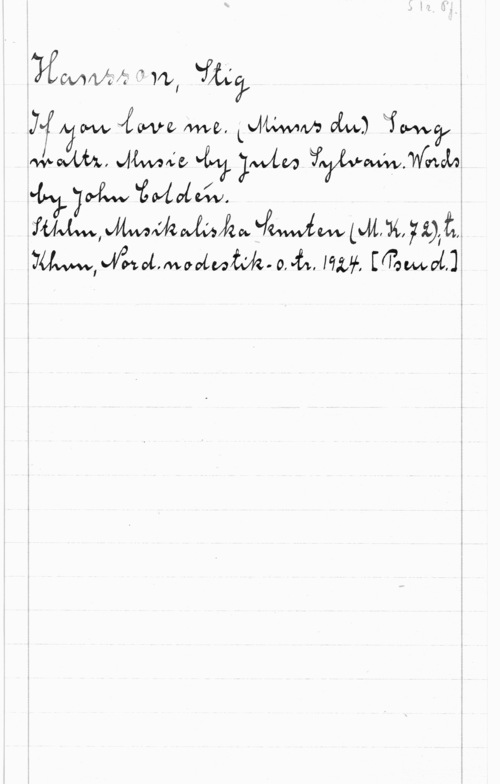 S 1 2. Pf.
Hansson, Stig
If you love me. (Minns du.) Song
waltz. Music by Jules Sylvain. Words
by John Coldén.
Sthlm, Musikaliska knuten (M.K. 72), tr.
Khvn, Nord. nodestik- o. tr. 1924. [Pseud.]